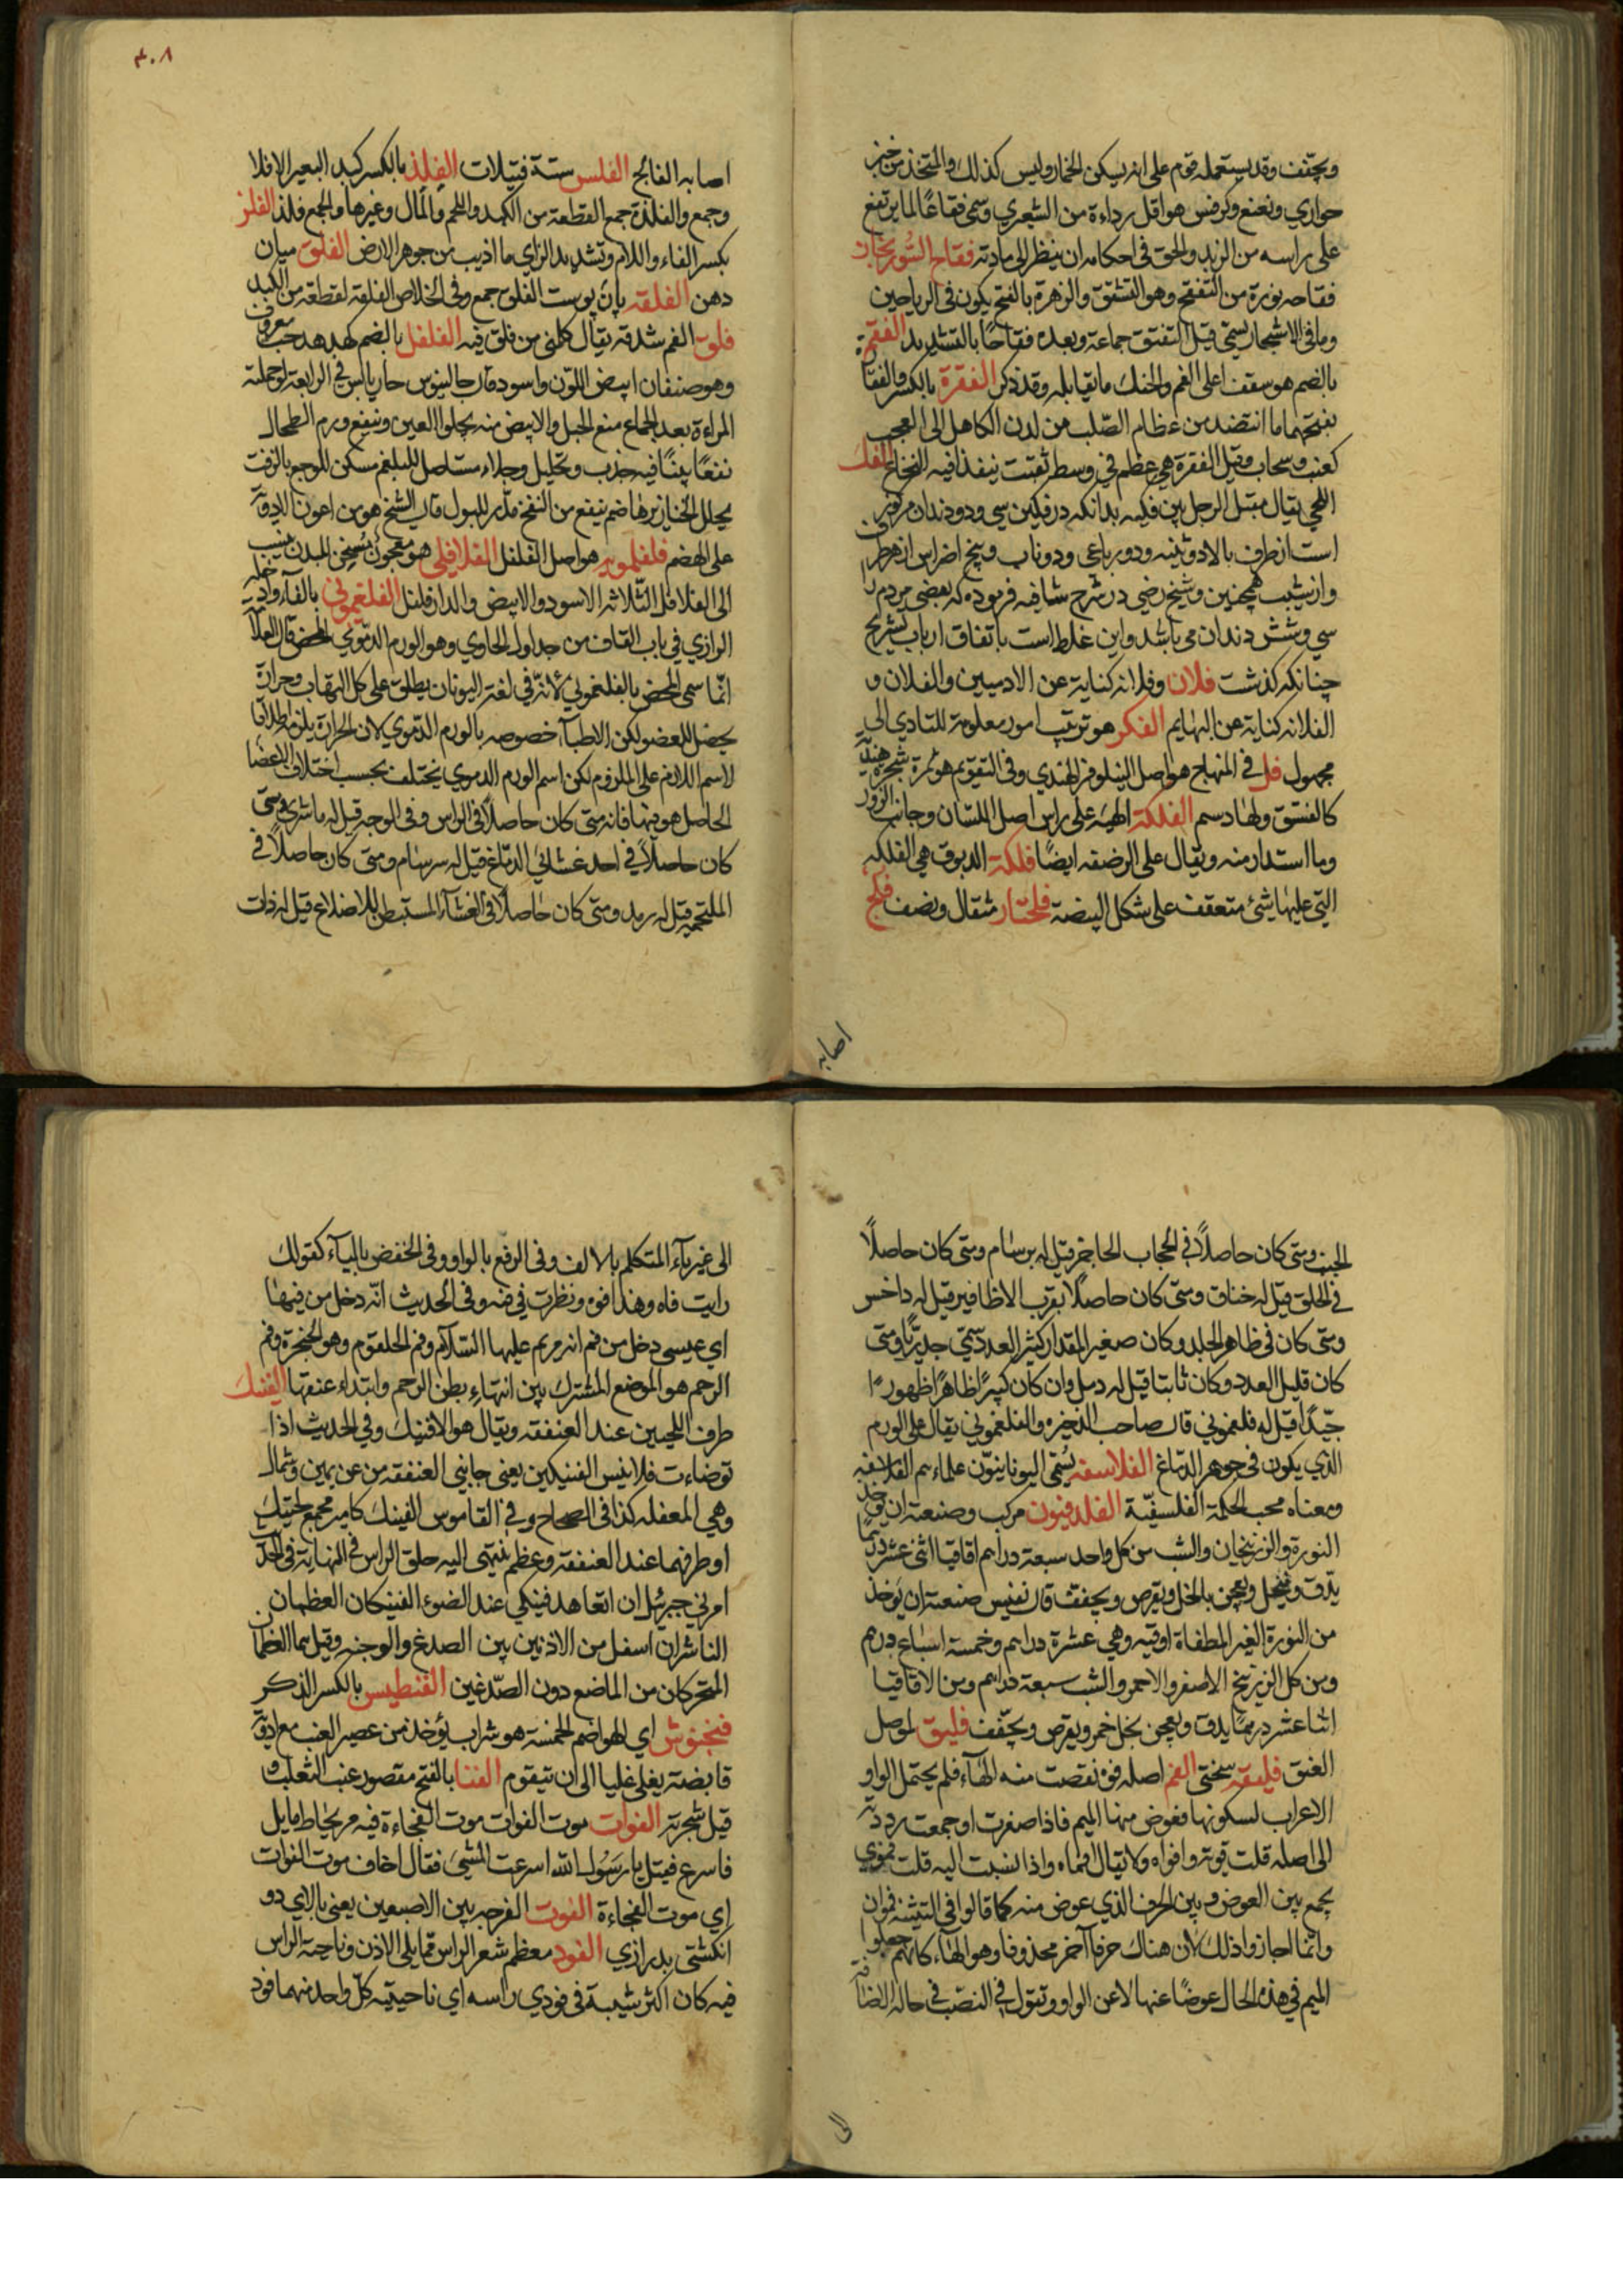 ويجفف وقد يستعمله قوم على انه يسكن الخمار وليس كذلك والمتخذ من خبز
حواري ونعنع وكرفس هو اقل رداءة من الشعيري وسمى فقاعا لما يرتفع
على راسه من الزبد والحق في احكامه ان ينظر الى مادته فقاح السوريجان
فقاحه نوره من التفتح وهو التشقق والزهرة بالفتح يكون في الرياحين
وما في الاشجار يسمى قبل التفتق جماعة وبعده فقاحًا بالتشديد الفقم
بالضم هو سقف اعلى الفم والحنك ما يقابله وقد ذكر الفقرة بالكسر والفقا
بفتحهما ما انتضد من عظام الصّلب من لدن الكاهل الى العجب
كعنب وسحاب وقيل الفقرة هي عظم في وسطه ثقبت ينفذ فيه النخاع الفك
اللحي يقال مقتل الرجل بين فكيه بدانكه در فكين سي ودو دندان مركوز
است از طرف بالا دو ثنيه ودو رباعى ودو ناب وپنج اضراس از هر طرف
واز شيب همچنين وشيخ رضي در شرح شافيه فرموده كه بعضى مردم را
سي وشش دندان مى باشد واين غلط است باتفاق ارباب تشريح
چنانكه كذشت فلان وفلانه كناية عن الادميين والفلان و
الفلانه كناية عن البهايم الفكر هو ترتيب امور معلومة للتادي الى
مجهول فل في المنهاج هو اصل النيلوفر الهندي وفى التقويم هو ثمرة شجرة هندية
كالفستق ولها دسم الفلكة الهية على راس اصل اللسان وجانب الزور
وما استدار منه ويقال على الرضفه ايضًا فلكة الدبوق هي الفلكه
التي عليها شئ متعقف على شكل البيضة فلنجار مثقال ونصف فلج
اصابه
٣٠٨
اصابه الفالج الفلس ستة فتيلات الفلذ بالكسر كبد البعير الافلا
وجمع والفلذة جمع القطعة من الكبد واللحم والمال وغيرها والجمع فلذ الفلز
بكسر الفاء واللام وتشديد الزاي ما اذيب من جوهر الارض الفلق ميان
دهن الفلقه پان پوست الفلق جمع وفى الخلاص الفلقة لقطعة من الكبد
فلق الفم شدقه يقال كلمنى من فلق فيه الفلفل بالضم كهدهد حب معروف
وهو صنفان ابيض اللون واسود قال جالينوس حار يابس في الرابعة لو حملته
المراءة بعد الجماع منع الحبل والابيض منه يجلوا العين وينفع ورم الطحال
نفعًا بينًا فيه جذب وتحليل وجلاء مستاصل للبلغم مسكن للوجع بالزفت
يحلل الخنازير هاضم ينفع من النفخ مدّر للبول قال الشيخ هو من اعون الادوية
على الهضم فلفلمويه هو اصل الفلفل الفلافلى هو معجون يسخن البدن ينسب
الى الفلافل الثلاثه الاسود والابيض والدار فلفل الفلغمونى بالفاء واد خله
الرازي في باب القاف من جداول الحاوي وهو الورم الدموي المحض قال العلا
انما سمى المحض بالفلغموني لانه في لغة اليونان يطلق على كل التهاب وحرارة
يحصل للعضو لكن الاطباء خصوصه بالورم الدموي لان الحرارة يلزم اطلاقا
لاسم اللازم على الملزوم لكن اسم الورم الدموي يختلف بحسب اختلاف الاعضا
الحاصل هو فيها فانه متى كان حاصلاً في الراس وفى الوجه قيل له ماشرى ومتى
كان حاصلاً في احد غشائي الدماغ قيل له سرسام ومتى كان حاصلاً في
الملتحمه قيل له رمد ومتى كان حاصلاً في الغشاء المستبطن للاضلاع قيل له ذات
الجنب ومتى كان حاصلاً في الحجاب الحاجز قيل له برسام ومتى كان حاصلاً
في الحلق قيل له خناق ومتى كان حاصلا بقرب الاظافير قيل له داخس
ومتى كان في ظاهر الجلد وكان صغير المقدار كثير العدد سمى جدريًا ومتى
كان قليل العدد وكان ثابتا قيل له دمل وان كان كبيرًا ظاهرًا ظهورًا
جيّدًا قيل له فلغموني قال صاحب الذخيره والفلغموني يقال على الورم
الذي يكون في جوهر الدماغ الفلاسفه يسمى اليونانيون علماءهم الفلاسفه
ومعناه محب الحكمة الفلسفيّة الفلدفيون مركب وصنعته ان يوخذ
النورة والزرنيخان والشب من كل واحد سبعة دراهم اقاقيا اثنى عشر درهما
يدّق وينخل ويعجن بالخل ويقرص ويجفف قال نفيس صنعته ان يوخذ
من النورة الغير المطفاة اوقيه وهي عشرة دراهم وخمسة اسباع درهم
ومن كل الزرنيخ الاصفر والاحمر والشب سبعة دراهم ومن الاقاقيا
اثنا عشر درهمًا يدق ويعجن بخل خمر ويقرص ويجفّف فليق لموصل
العنق فليقه سختى الفم اصله فوه نقصت منه الهاء فلم يحتمل الواو
الاعراب لسكونها فعوض منها الميم فاذا صغرت او جمعت رددته
الى اصله قلت فويه وافواه ولا يقال افماه واذا نسبت اليه قلت فموي
يجمع بين العوض وبين الحرف الذي عوض منه كما قالوا في التثنيه فموان
وانما اجازوا ذلك لان هناك حرفا آخر محذوفا وهو الهاء كانهم جعلوا
الميم في هذه الحال عوضًا عنها لا عن الواو وتقول في النصب في حالة الاضافة
الى
الى غير ياء المتكلم بالالف وفى الرفع بالواو وفى الخفض بالياء كقولك
رايت فاه وهذا فوه ونظرت في فيه وفى الحديث انّه دخل من فيها
اي عيسى دخل من فم امه مريم عليها السلام وفم الحلقوم وهو الحنجرة وفم
الرحم هو الموضع المشترك بين انتهاء بطن الرحم وابتداء عنقها الفنك
طرف اللحيين عند العنفقه ويقال هو الافنيك وفي الحديث اذا
توضاءت فلا تنس الفنيكين يعنى جانبي العنفقه من عن يمين وشمال
وهي المعفله كذا في الصحاح وفي القاموس الفينك كامير مجمع لحيتك
او طرفهما عند العنفقه وعظم ينتهى اليه حلق الراس في النهاية في الحديث
امرني جبرئيل ان اتعاهد فنيكي عند الضوء الفنيكان العظمان
الناشران اسفل من الاذنين بين الصدغ والوجنه وقيل هما العظمان
المتحركان من الماضع دون الصّدغين الفنطيس بالكسر الذكر
فنجنوش اي الهواضم الخمسة هو شراب يؤخذ من عصير العنب مع ادوية
قابضة يغلى غليا الى ان يتقوم الفنا بالفتح مقصور عنب الثعلب و
قيل شجرته الفوات موت الفوات موت الفجاءة فيه مر بحايط مايل
فاسرع فقيل يا رسول الله اسرعت المشى فقال اخاف موت الفوات
اي موت الفجاءة الفوت الفرجه بين الاصبعين يعنى بالاى دو
انكشتى بدرازي الفود معظم شعر الراس ممّا يلى الاذن وناحية الراس
فيه كان اكثر شيبة في فودي راسه اي ناحيتيه كلّ واحد منهما فود